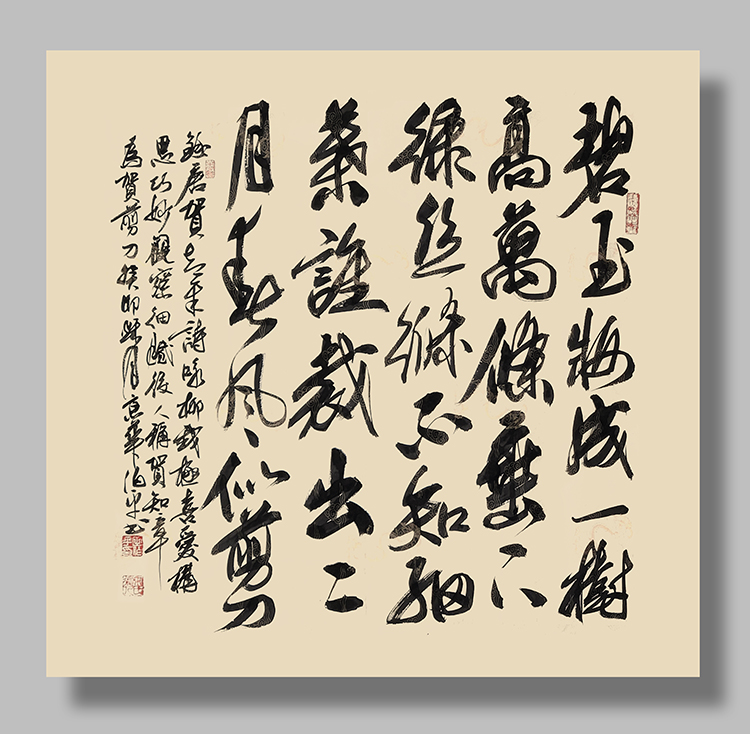 碧玉妝成一樹
高萬條垂下
綠丝絛不知細
葉誰裁出二
月春風似剪刀
錄唐賀知章詩咏柳我極喜愛構
思巧妙觀察細膩後人稱賀知章
為賀剪刀癸卯臘月京華伯平書